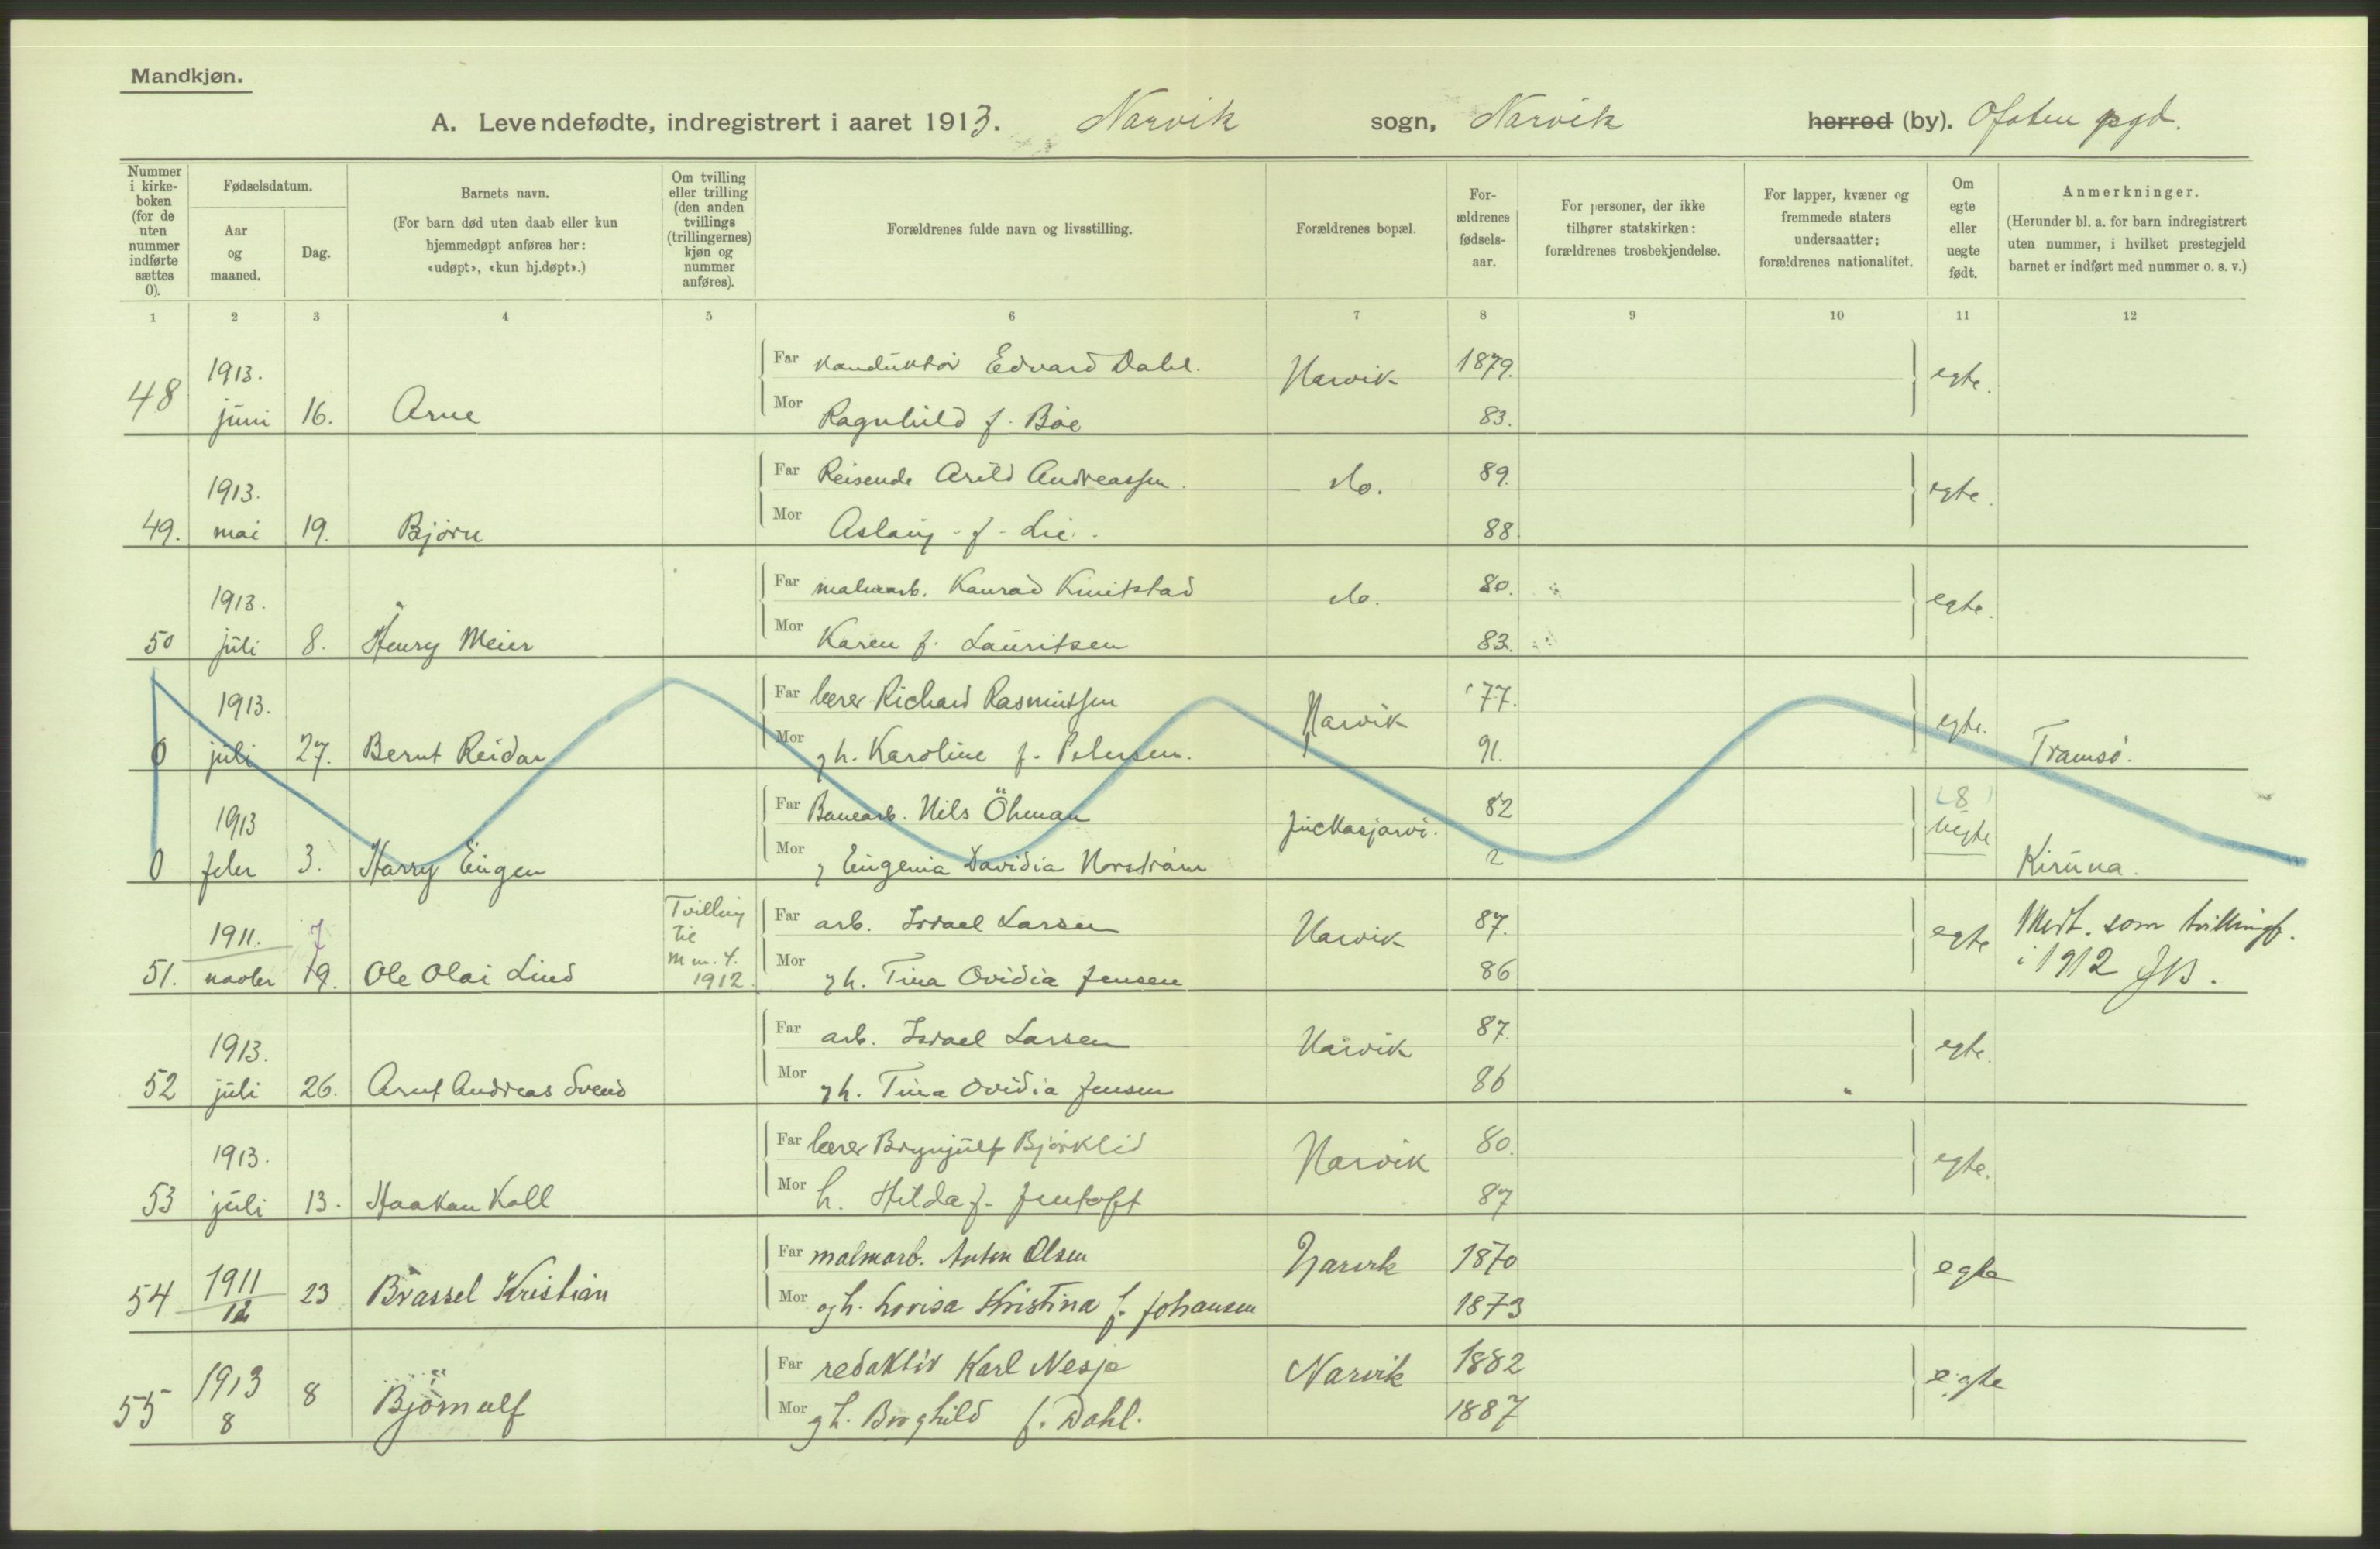 Mandkjøn.
A. Levendefødte, indregistrert i aaret 1913. Narvik sogn, Narvik herred (by). Ofoten pgd.
Nummer i kirke-boken (for de uten nummer indførte sættes 0).
Fødselsdatum.
Aar og maaned.
Dag.
Barnets navn.
(For barn død uten daab eller kun hjemmedøpt anføres her: «udøpt», «kun hj.døpt».)
Om tvilling eller trilling (den anden tvillings (trillingernes) kjøn og nummer anføres).
Forældrenes fulde navn og livsstilling.
Forældrenes bopæl.
For-ældrenes fødsels-aar.
For personer, der ikke tilhører statskirken: forældrenes trosbekjendelse.
For lapper, kvæner og fremmede staters undersaatter: forældrenes nationalitet.
Om egte eller uegte født.
Anmerkninger.
(Herunder bl. a. for barn indregistrert uten nummer, i hvilket prestegjeld barnet er indført med nummer o. s. v.)
1 2 3 4 5 6 7 8 9 10 11 12
48 1913. juni 16. Arne
Far konduktør Edvard Dahl. Narvik 1879. egte.
Mor Ragnhild f. Bøe 83.
49. 1913. mai 19. Bjørn
Far Reisende Arild Andreassen. do. 89. egte.
Mor Aslaug - f - Lie. 88.
50 1913. juli 8. Henry Meier
Far malmarb. Konrad do. 80. egte.
Mor Karen f. Lauritsen 83.
0 1913. juli 27. Bernt Reidar
Far lærer Richard Rasmussen Narvik 77. egte. Tromsø.
Mor gh. Karoline f. Petersen. 91.
0 1913 febr 3. Harry Eugen
Far Banearb. Nils Öhman Juckasjärvi. 82 (8) uegte Kiruna.
Mor Eugenia Davidia Norström 2
51. 1911. novbr 19. 7 Ole Olai Lind
Tvilling til M nr. 4. 1912.
Far arb. Israel Larsen Narvik 87. egte
Mor gh. Tina Ovidia Jensen 86
Medt. som tvillingf. i 1912
52 1913. juli 26. Arnt Andreas Svend
Far arb. Israel Larsen Narvik 87. egte.
Mor gh. Tina Ovidia Jensen 86
53 1913. juli 13. Haakon Koll
Far lærer Brynjulf Bjørklid Narvik 80. egte.
Mor h. Hilda f. Jentoft 87
54 1911 12 23 Brassel Kristian
Far malmarb. Anton Olsen Narvik 1870 egte
Mor og h. Lovisa Kristina f. Johansen 1873
55 1913 8 8 Björnulf
Far redaktör Karl Nesje Narvik 1882 egte
Mor gh. Borghild f. Dahl. 1887